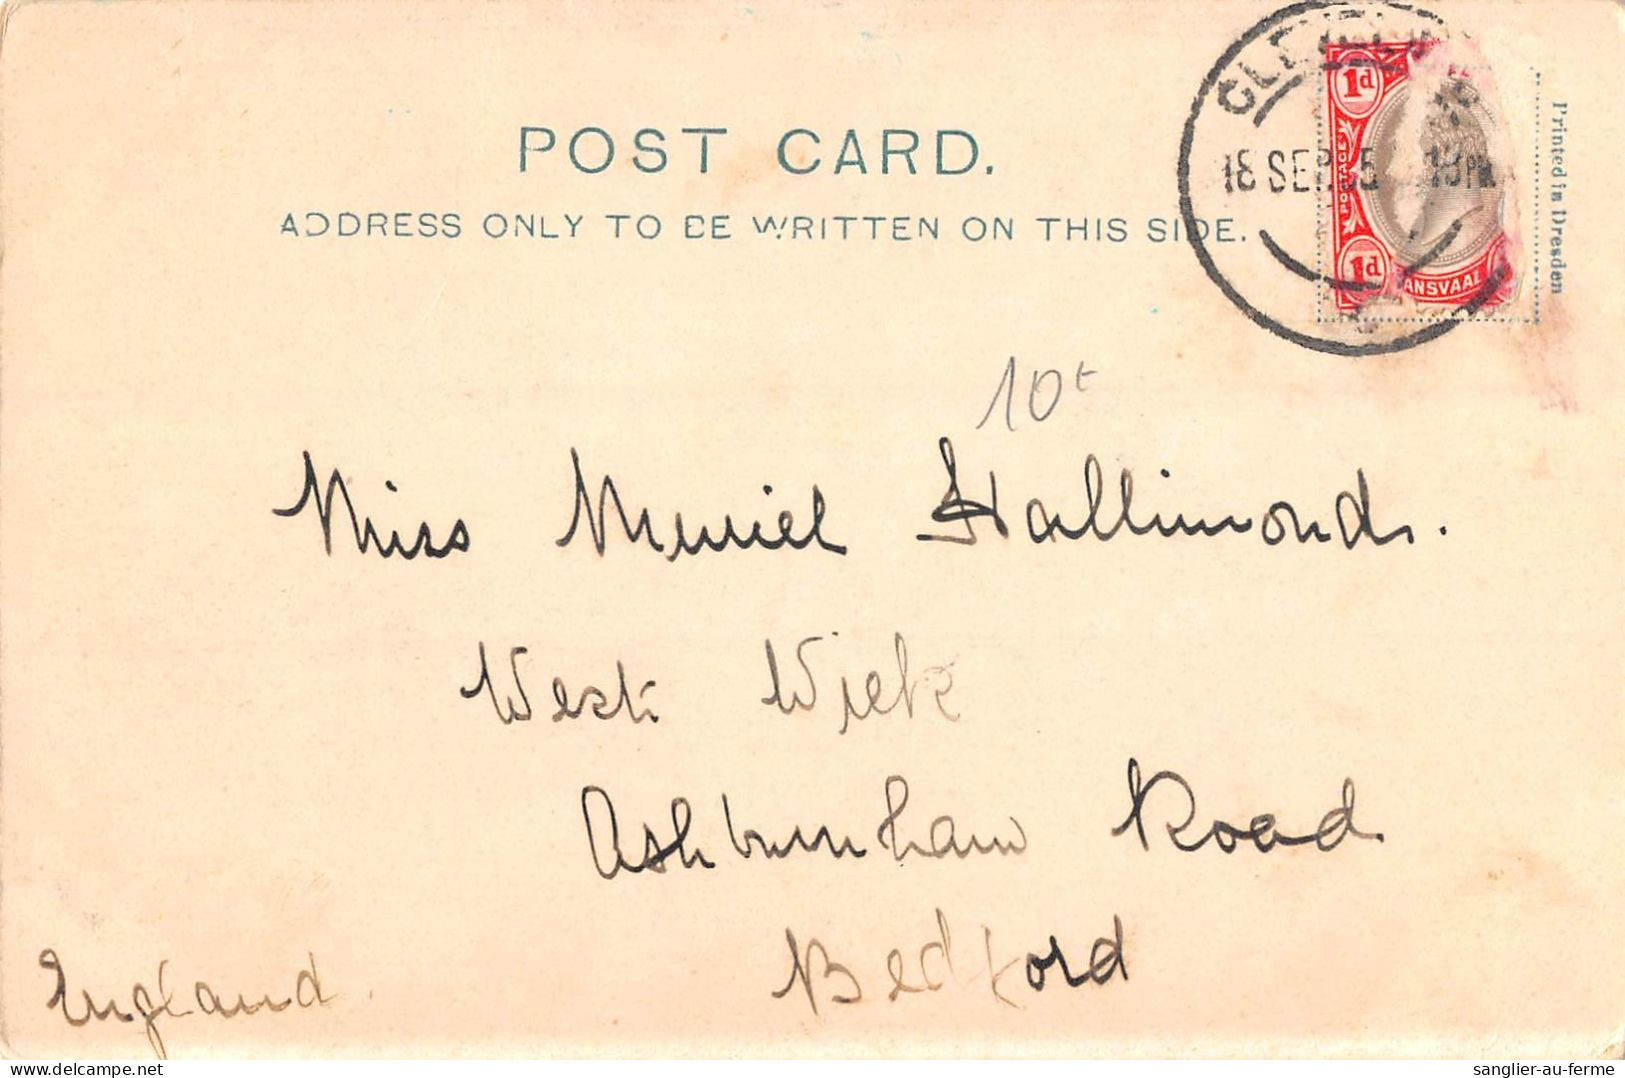 POST CARD.
ADDRESS ONLY TO BE WRITTEN ON THIS SIDE.
18 SEP 05
1d
POSTAGE
1d
ANSVAAL
Printed in Dresden
10t
Miss Muriel Hallimonds.
West Wick
Ashburnham Road
Bedford
England.
sanglier-au-ferme